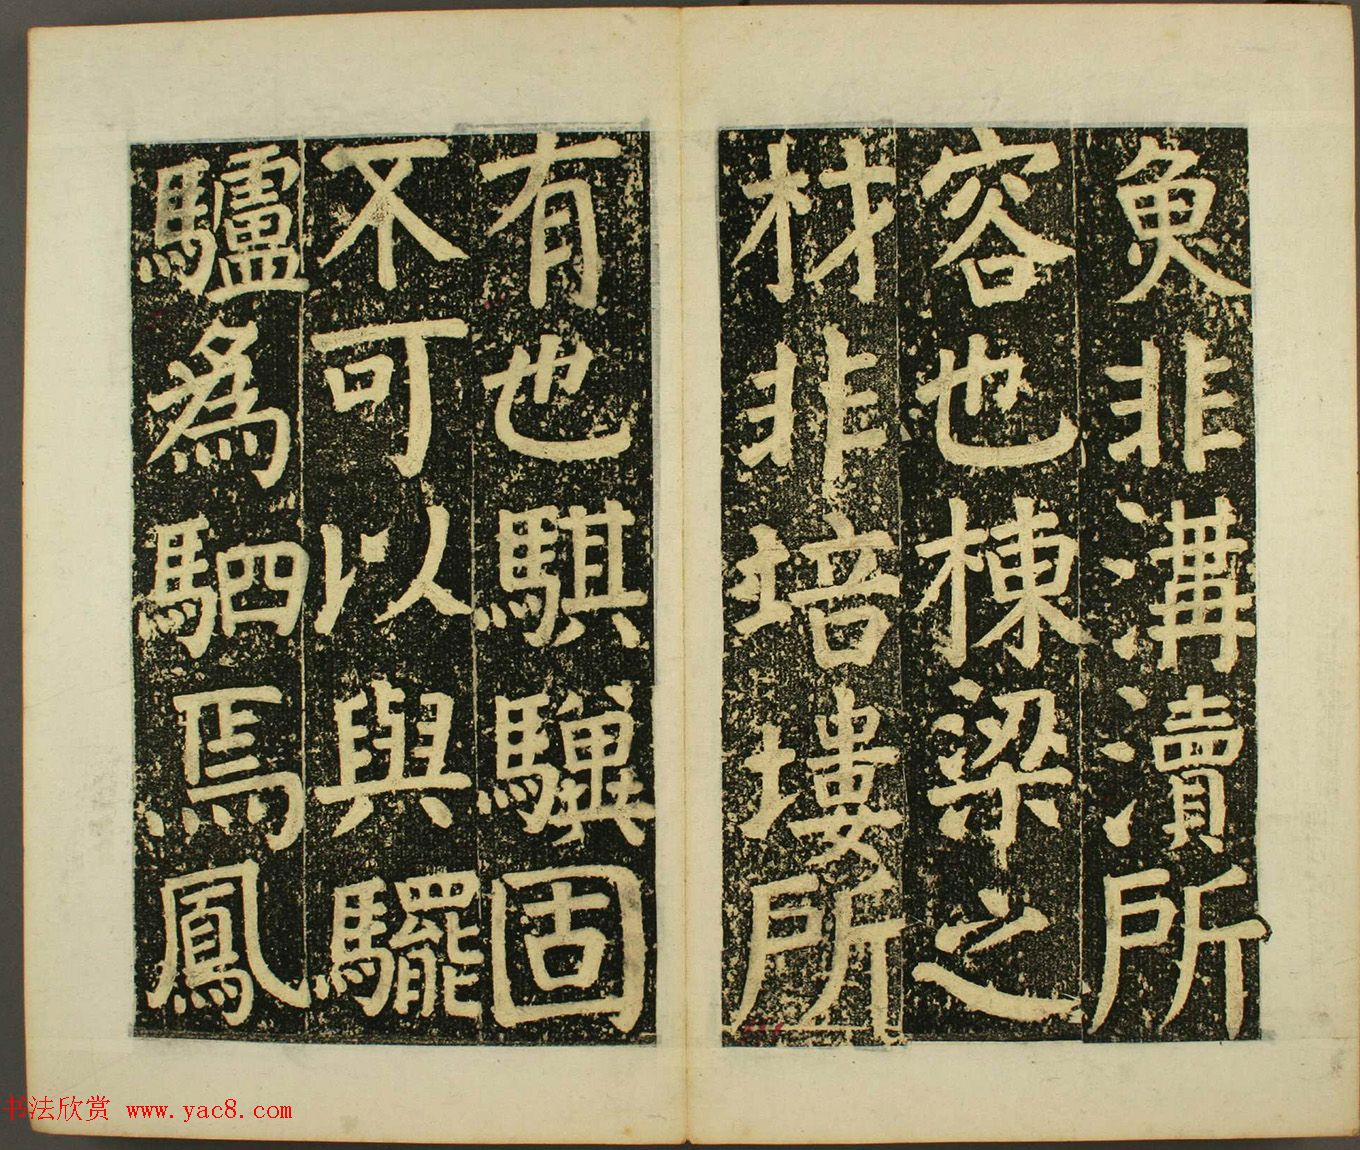 魚非溝瀆所
容也棟梁之
材非培塿所
有也騏驥固
不可以與驢
驢為駟焉鳳
书法欣赏 www.yac8.com